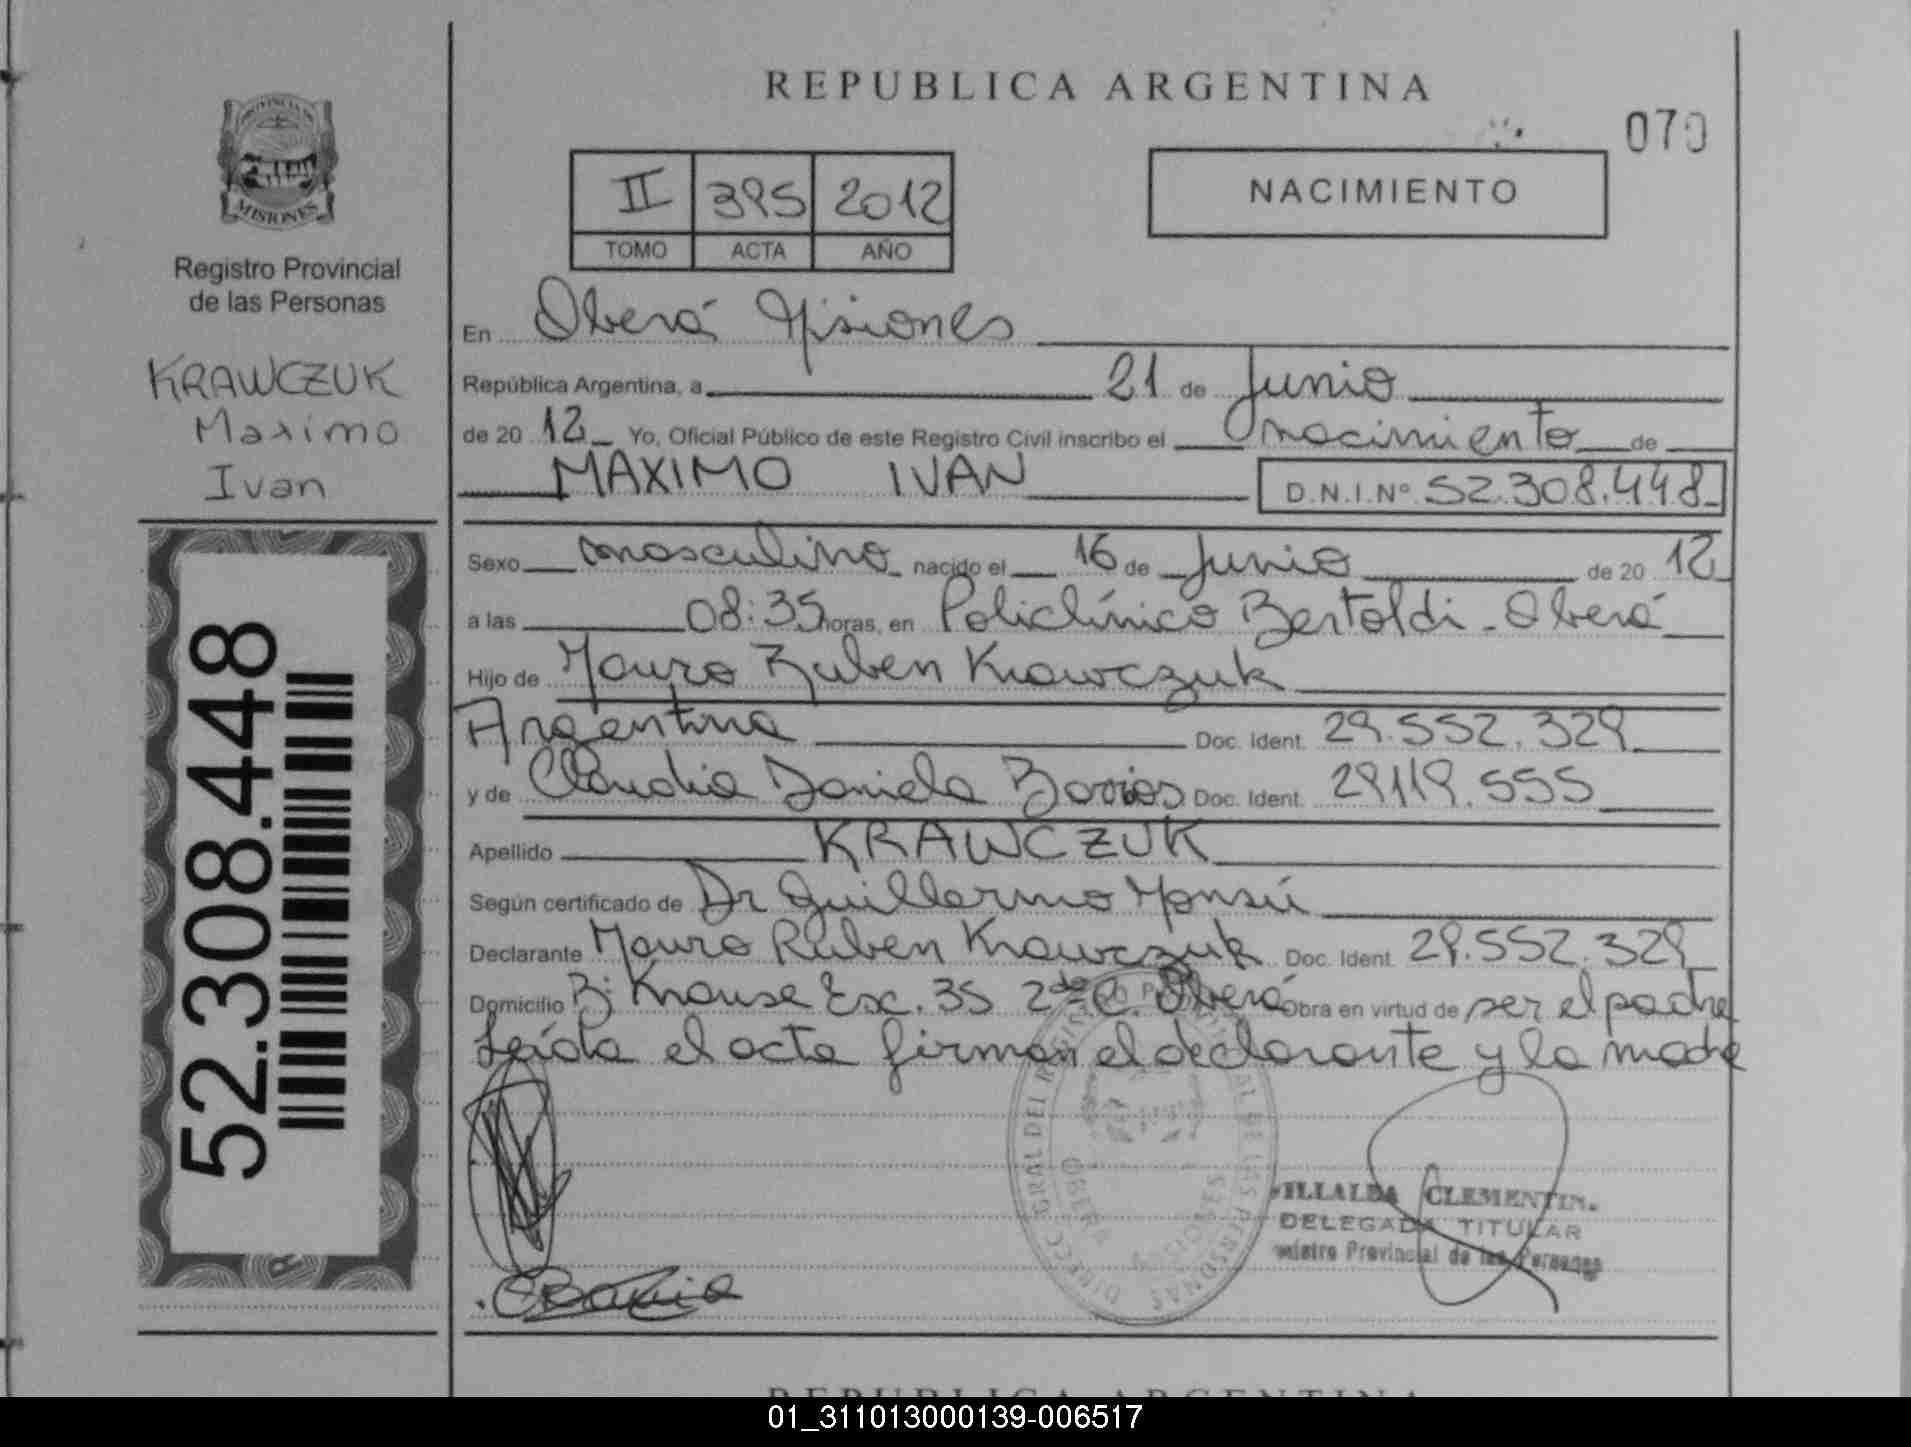 REPUBLICA ARGENTINA
070
PROVINCIA DE
MISIONES
Registro Provincial
de las Personas
KRAWCZUK
Maximo
Ivan
52.308.448
II 395 2012
TOMO ACTA AÑO
NACIMIENTO
En Oberá Misiones
República Argentina, a 21 de Junio
de 20 12 Yo, Oficial Público de este Registro Civil inscribo el nacimiento de
MAXIMO IVAN D.N.I.Nº 52.308.448
Sexo masculino nacido el 16 de Junio de 20 12
a las 08:35 horas, en Policlínico Bertoldi - Oberá
Hijo de Mauro Ruben Krawczuk
Argentina Doc. Ident. 29.552.329
y de Claudia Daniela Barrios Doc. Ident. 29119.555
Apellido KRAWCZUK
Según certificado de Dr Guillermo Monsú
Declarante Mauro Ruben Krawczuk Doc. Ident. 29.552.329
Domicilio Bº Krause Esc. 35 2da C. Oberá Obra en virtud de ser el padre
Leída el acta firman el declarante y la madre
DIREC. GRAL DEL REGISTRO PROVINCIAL DE LAS PERSONAS
OBERA
MISIONES
VILLALBA CLEMENTIN
DELEGADA TITULAR
Registro Provincial de las Personas
REPUBLICA ARGENTINA
01_311013000139-006517